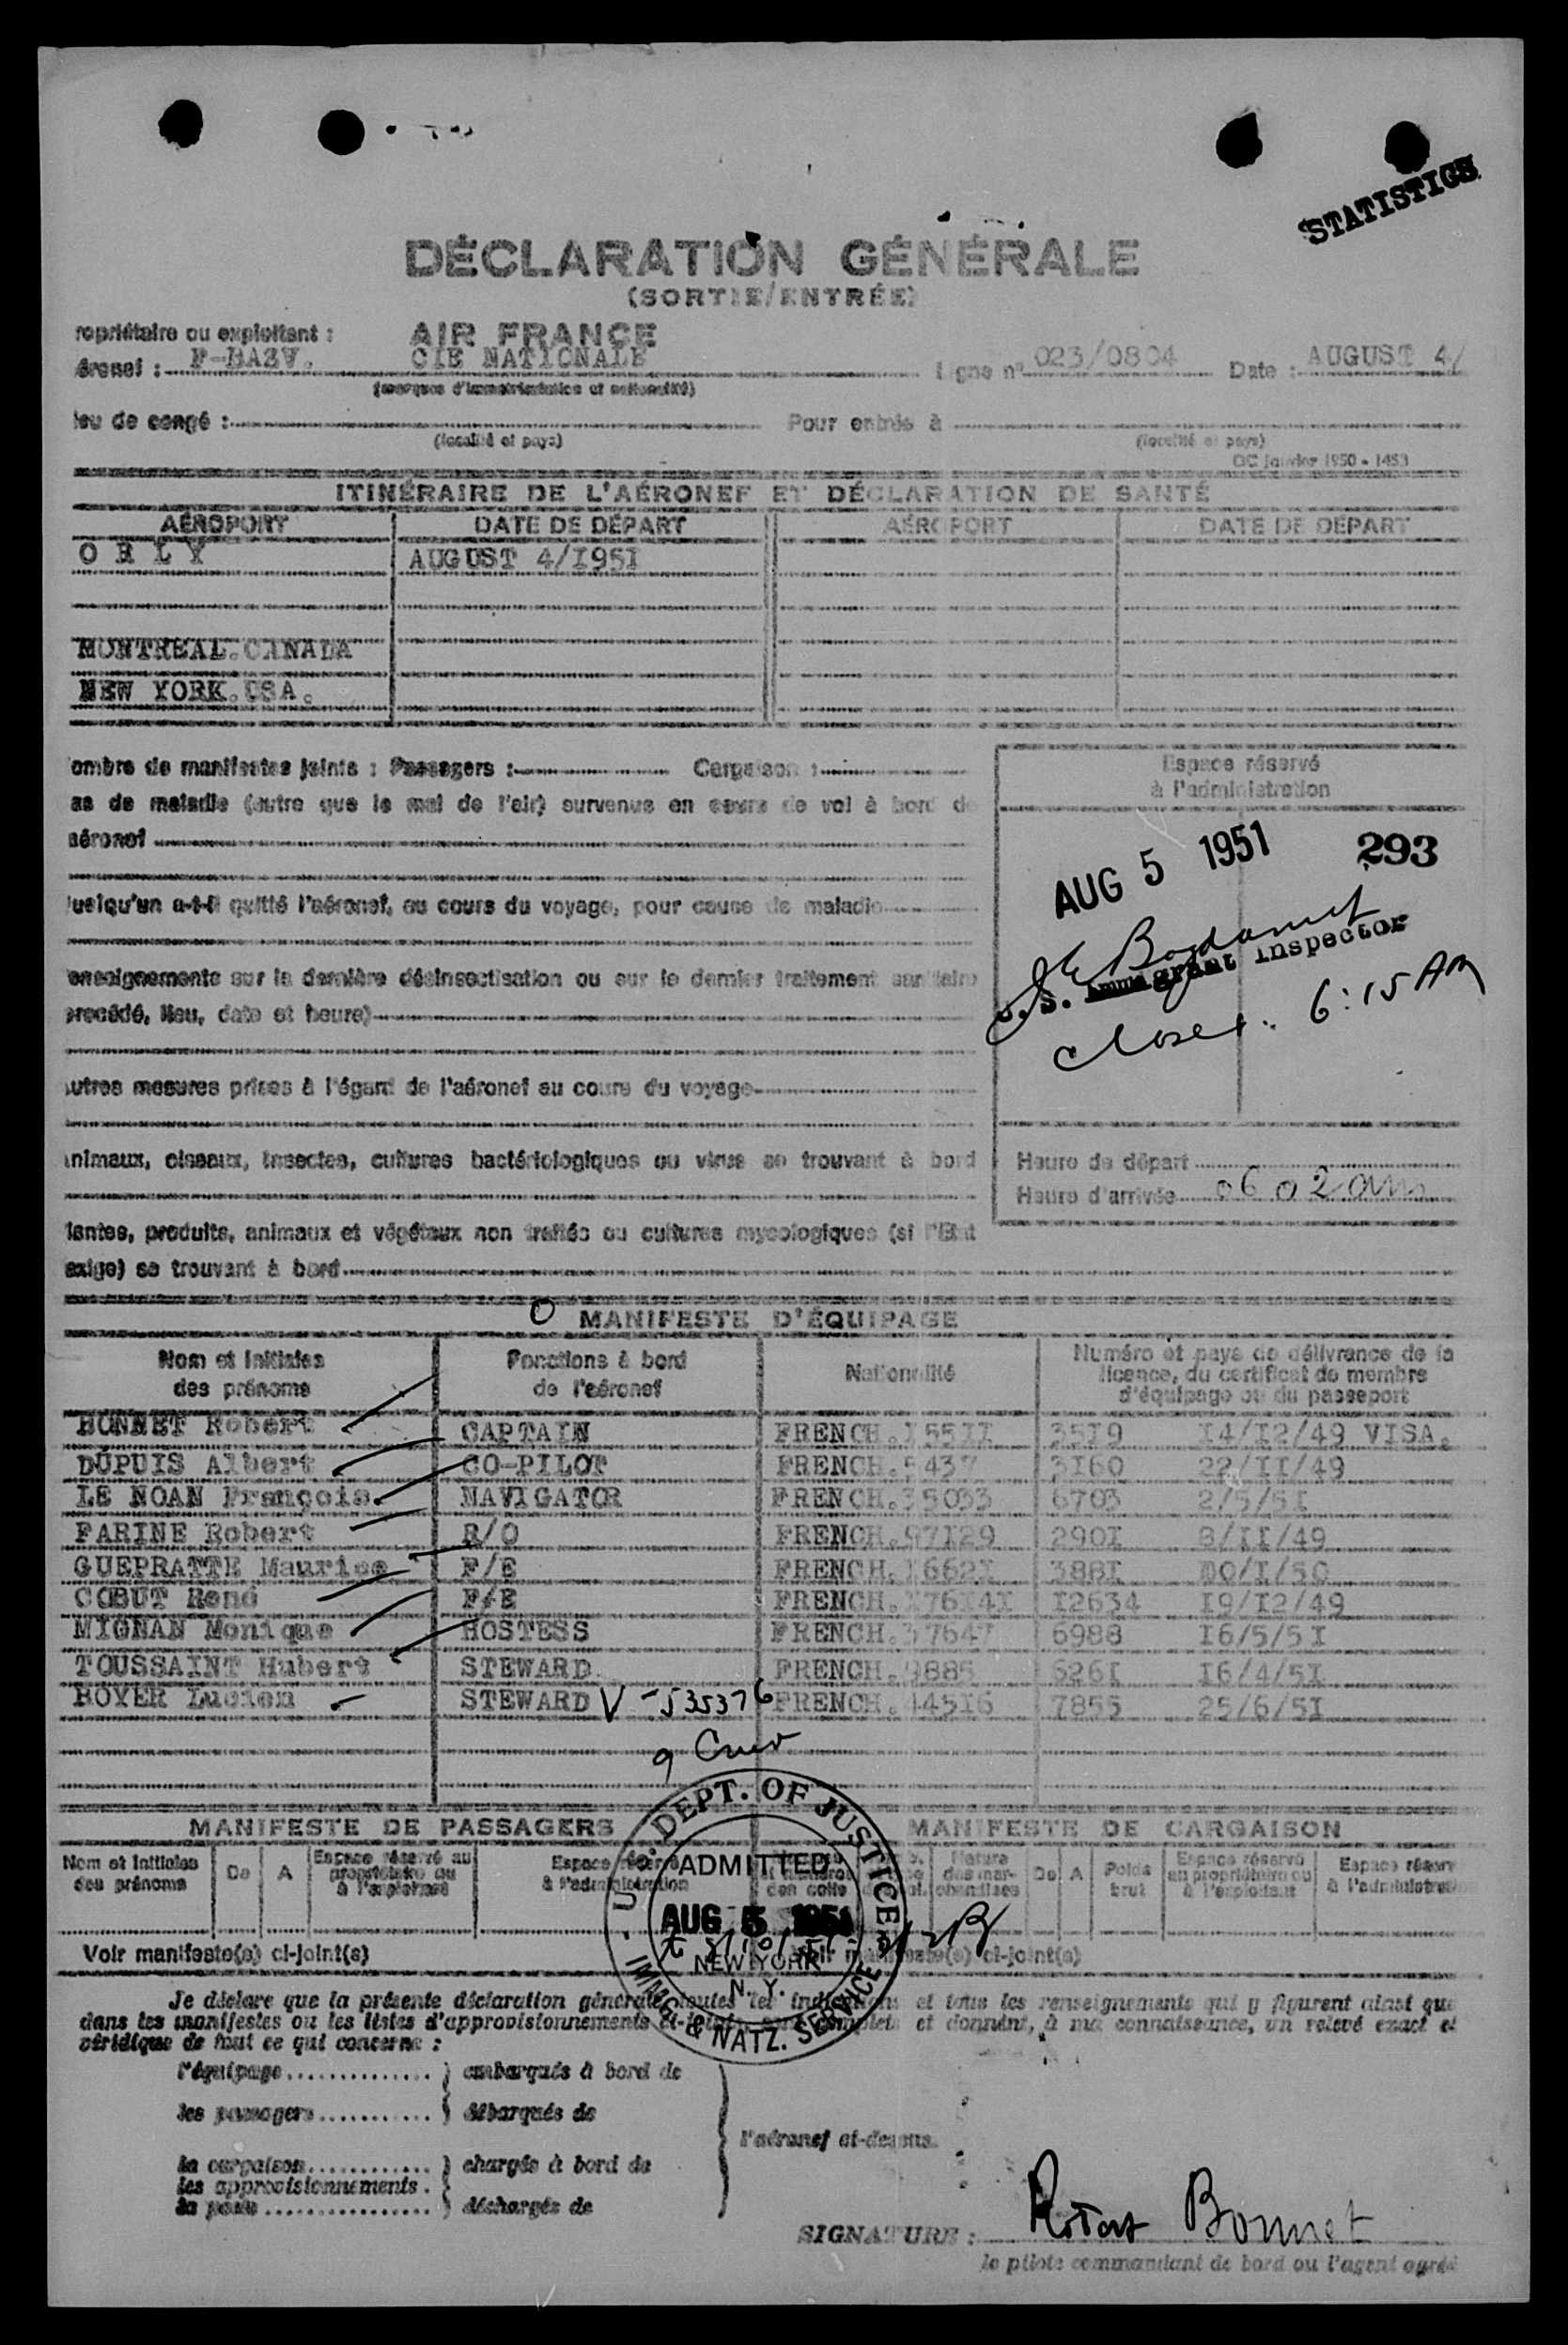 STATISTICS
DÉCLARATION GÉNÉRALE
(SORTIE/ENTRÉE)
ropriétaire ou exploitant : AIR FRANCE
éronef : F-BAZV. CIE NATIONALE Ligne n° 023/0804 Date : AUGUST 4/
(marques d'immatriculation et nationalité)
ieu de congé : Pour entrée à
(localité et pays) (localité et pays)
OC Janvier 1950 - 1453
ITINÉRAIRE DE L'AÉRONEF ET DÉCLARATION DE SANTÉ
AÉROPORT DATE DE DÉPART AÉROPORT DATE DE DÉPART
O R L Y AUGUST 4/I95I
MONTREAL.CANADA
NEW YORK.USA.
ombre de manifestes joints : Passagers : Cargaison :
as de maladie (autre que le mal de l'air) survenus en cours de vol à bord de
aéronef
uelqu'un a-t-il quitté l'aéronef, au cours du voyage, pour cause de maladie
enseignements sur la dernière désinsectisation ou sur le dernier traitement sanitaire
procédé, lieu, date et heure)
utres mesures prises à l'égard de l'aéronef au cours du voyage
nimaux, oiseaux, insectes, cultures bactériologiques ou virus se trouvant à bord
lantes, produits, animaux et végétaux non traités ou cultures mycologiques (si l'État
exige) se trouvant à bord
Espace réservé
à l'administration
AUG 5 1951 293
S. Immigrant Inspector
6:15 AM
Heure de départ
Heure d'arrivée 06 02 am
O MANIFESTE D'ÉQUIPAGE
Nom et initiales des prénoms Fonctions à bord de l'aéronef Nationalité Numéro et pays de délivrance de la licence, du certificat de membre d'équipage ou du passeport
BONNET Robert CAPTAIN FRENCH.I55II 35I9 I4/I2/49 VISA.
DUPUIS Albert CO-PILOT FRENCH.5437 3I60 22/II/49
LE NOAN François. NAVIGATOR FRENCH.35033 6703 2/5/5I
FARINE Robert R/O FRENCH.97I29 290I 8/II/49
GUEPRATTE Maurice F/E FRENCH.I662I 388I /I/50
COBUT René F/E FRENCH.I76I4I I2634 I9/I2/49
MIGNAN Monique HOSTESS FRENCH.37647 6988 I6/5/5I
TOUSSAINT Hubert STEWARD. FRENCH.9885 626I I6/4/5I
BOYER Lucien STEWARD V-535376 FRENCH.445I6 7855 25/6/5I
9 Crew
MANIFESTE DE PASSAGERS MANIFESTE DE CARGAISON
Nom et initiales des prénoms De A Espace réservé au propriétaire ou à l'exploitant Espace réservé à l'administration des colis Nature des marchandises De A Poids brut Espace réservé au propriétaire ou à l'exploitant Espace réserv à l'administrat
U. S. DEPT. OF JUSTICE
ADMITTED
AUG 5 1951
NEW YORK
N. Y.
IMMG. & NATZ. SERVICE
Voir manifeste(s) ci-joint(s) Voir manifeste(s) ci-joint(s)
Je déclare que la présente déclaration générale, toutes les indications et tous les renseignements qui y figurent ainsi que
dans les manifestes ou les listes d'approvisionnements ci-joints sont complets et donnent, à ma connaissance, un relevé exact et
véridique de tout ce qui concerne :
l'équipage embarqués à bord de
les passagers débarqués de
l'aéronef ci-dessus.
la cargaison chargés à bord de
les approvisionnements
la poste déchargés de
SIGNATURE : Robert Bonnet
le pilote commandant de bord ou l'agent agréé